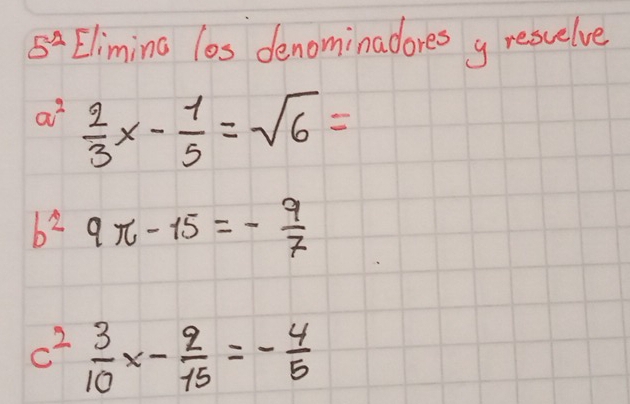 5ª Elimina los denominadores y resuelve
a² 2/3 x - 1/5 = √6 =
b² 9π - 15 = - 9/7
c² 3/10 x - 2/15 = - 4/5